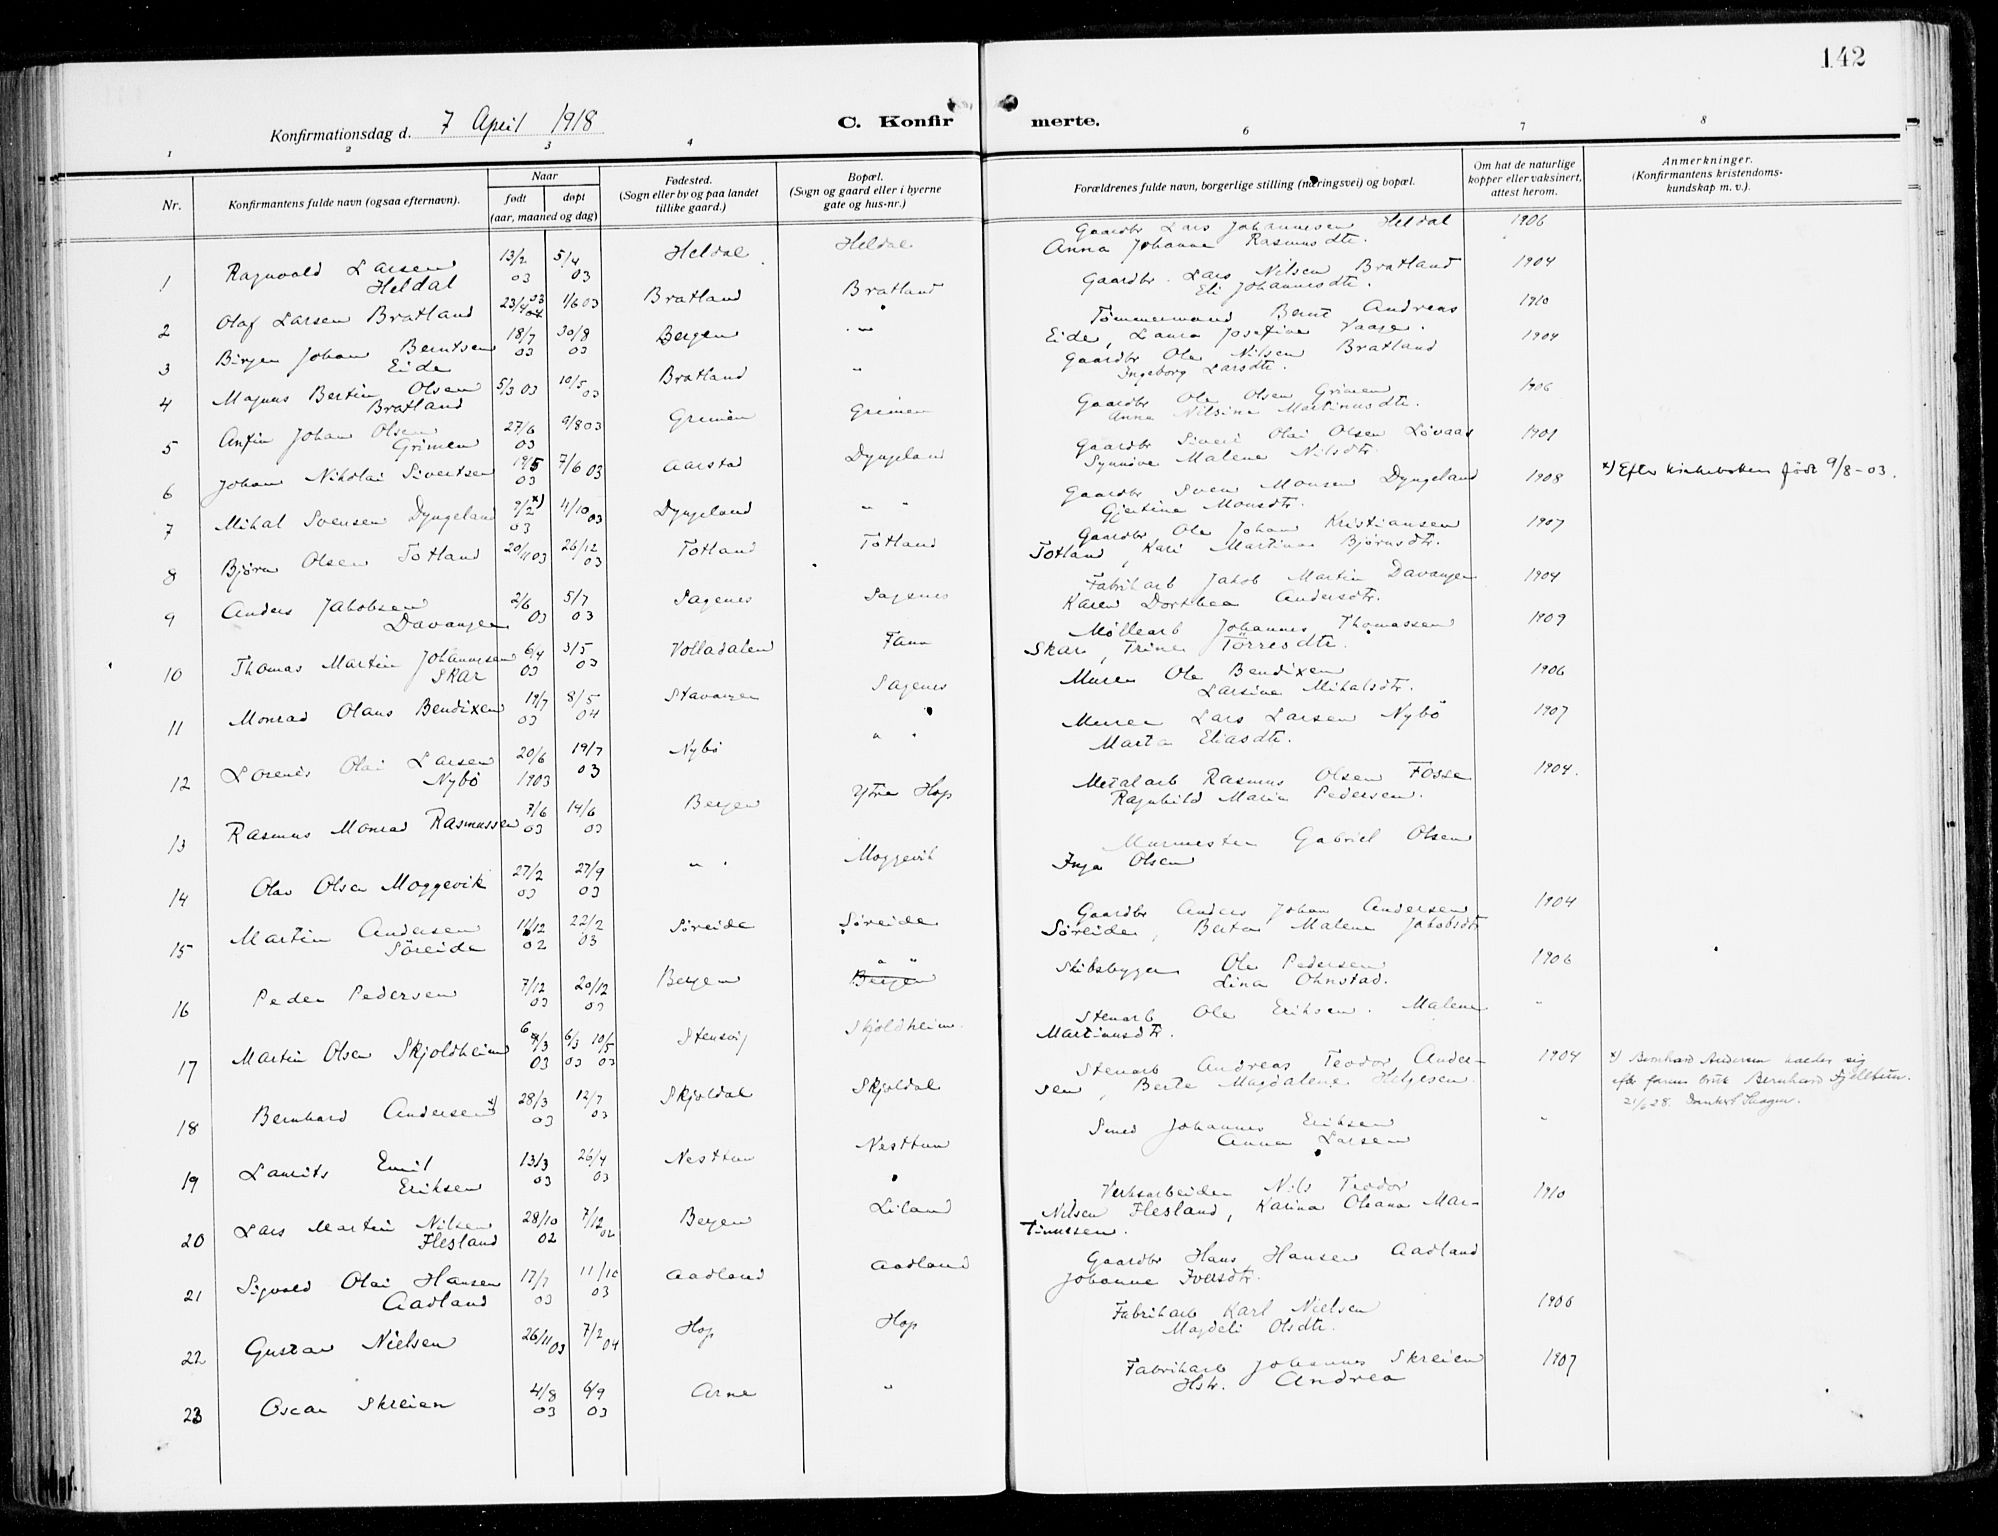 142
Konfirmationsdag d. 7 April 1918
C. Konfirmerte.
1 2 3 4 6 7 8
Nr.
Konfirmantens fulde navn (ogsaa efternavn).
Naar
født døpt
(aar, maaned og dag)
Fødested.
(Sogn eller by og paa landet
tillike gaard.)
Bopæl.
(Sogn og gaard eller i byerne
gate og hus-nr.)
Forældrenes fulde navn, borgerlige stilling (næringsvei) og bopæl.
Om hat de naturlige
kopper eller vaksinert,
attest herom.
Anmerkninger.
(Konfirmantens kristendoms-
kundskap m. v.).
1 Ragnvald Larsen Heldal 13/2 03 5/4 03 Heldal Heldal Gaardbr Lars Johannesen Heldal
Anna Johanne Rasmusdtr. 1906
2 Olaf Larsen Bratland 23/4 03 04 1/6 03 Bratland Bratland Gaardbr. Lars Nilsen Bratland
Eli Johannesdtr. 1904
3 Birger Johan Berntsen Eide 18/7 03 30/8 03 Bergen " Tømmermand Bernt Andreas
Eide, Laura Josefine Vaage. 1910
4 Magnus Bertin Olsen Bratland 5/3 03 10/5 03 Bratland " Gaardbr Ole Nilsen Bratland
Ingeborg Larsdtr. 1904
5 Anfin Johan Olsen Grimen 27/6 03 9/8 03 Grimen Grimen Gaardbr Ole Olsen Grimen
Anna Nilsine Martinusdtr. 1906
6 Johan Nikolai Sivertsen 19/5 03 7/6 03 Aarstad Dyngeland Gaardbr Sivert Olai Olsen Løvaas
Synnøve Malene Nilsdtr. 1901
7 Mihal Svensen Dyngeland 9/2 x) 03 4/10 03 Dyngeland " " Gaardbr Sven Monsen Dyngeland
Gjertine Monsdtr. 1908 x) Efter kirkeboken født 9/8-03.
8 Bjørn Olsen Totland 20/11 03 26/12 03 Totland Totland Gaardbr Ole Johan Kristiansen
Totland, Kari Martina Bjørnsdtr. 1907
9 Anders Jakobsen Davanger 2/6 03 5/7 03 Sagenes Sagenes Fabrikarb Jakob Martin Davanger
Karen Dorthea Andersdtr. 1904
10 Thomas Martin Johannesen Skar 6/4 03 3/5 03 Volladalen Fann Møllearb Johannes Thomassen
Skar, Trine Torresdtr. 1909
11 Monrad Olaus Bendixen 19/7 03 8/5 04 Stavanger Sagenes Murer Ole Bendixen
Larsine Mihalsdtr. 1906
12 Lorents Olai Larsen Nybø 20/6 1903 19/7 03 Nybø " " Murer Lars Larsen Nybö
Marta Eliasdtr. 1907
13 Rasmus Monrad Rasmussen 7/6 03 14/6 03 Bergen Ytre Hop Metalarb Rasmus Olsen Fosse
Ragnhild Marie Pedersen. 1904.
14 Olav Olsen Moggevik 27/2 03 27/9 03 " " Moggevik Murmester Gabriel Olsen
Inga Olsen
15 Martin Andersen Søreide 11/12 02 22/2 03 Søreide Søreide Gaardbr Anders Johan Andersen
Søreide, Berta Malene Jakobsdtr 1904
16 Peder Pedersen 7/12 03 20/12 03 Bergen " " Bergen Skibsbygger Ole Pedersen
Lina Ohnstad. 1906
17 Martin Olsen Skjoldheim 6/3 03 6/3 03 10/5 03 Stensvig Skjoldheim. Stenarb Ole Eriksen. Malene
Martinusdtr. "
18 Bernhard Andersen x) 28/3 03 12/7 03 Skjoldal Skjoldal Stenarb Andreas Teodor Ander-
sen, Berte Magdalene Helgesen. 1904 x) Bernhard Andersen kalder sig
efter farens bruk Bernhard Fjelltun.
21/6 28.
19 Laurits Emil Eriksen 13/3 03 26/4 03 Nesttun Nesttun Smed Johannes Eriksen
Anna Larsen "
20 Lars Martin Nilsen Flesland 28/10 02 7/12 02 Bergen Liland Verksarbeider Nils Teodor
Nilsen Flesland, Karina Oleana Mar-
tinussen. 1910
21 Sigvald Olai Hansen Aadland 17/7 03 11/10 03 Aadland Aadland Gaardbr Hans Hansen Aadland
Johanne Iversdtr.
22 Gustav Nielsen 26/11 03 7/2 04 Hop Hop Fabrikarb Karl Nielsen
Magdeli Olsdtr. 1906
23 Oscar Skreien 4/8 03 6/9 03 Arne " Fabrikarb Johannes Skreien
Hstr. Andrea 1907